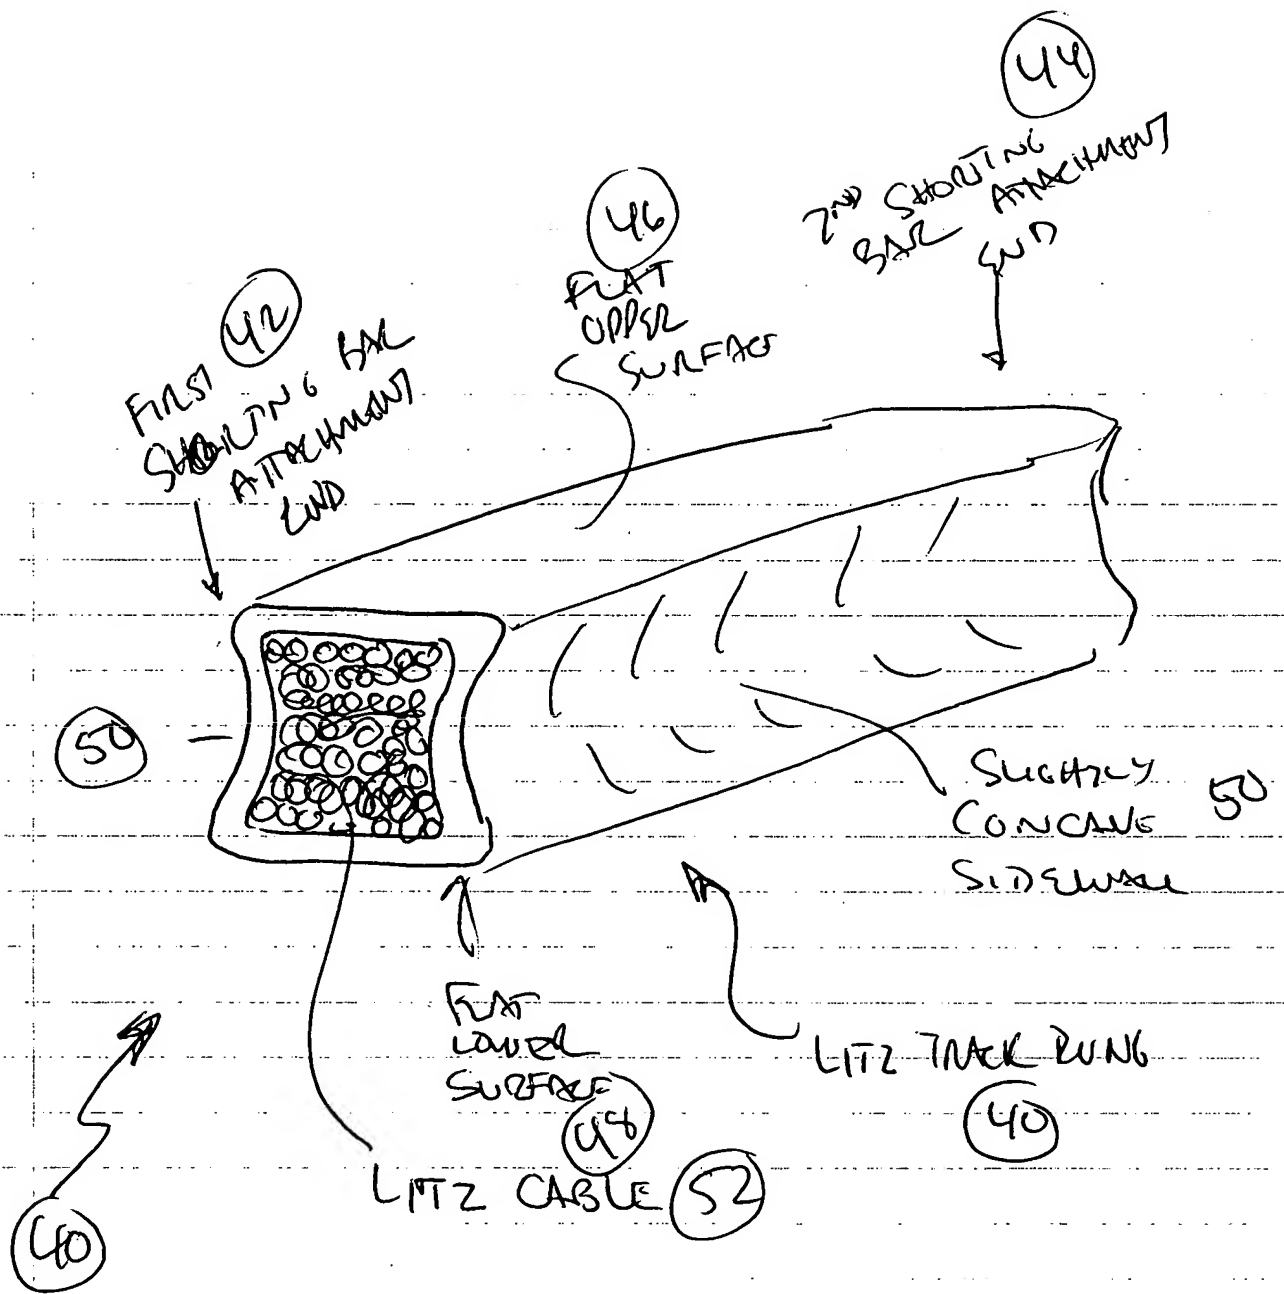 44
2ND SHORTING
BAR ATTACHMENT
END
46
FLAT
UPPER
SURFACE
42
FIRST
SHORTING BAR
ATTACHMENT
END
50
SLIGHTLY
CONCAVE 50
SIDEWALL
FLAT
LOWER
SURFACE
48
LITZ TRACK RUNG
40
LITZ CABLE 52
40